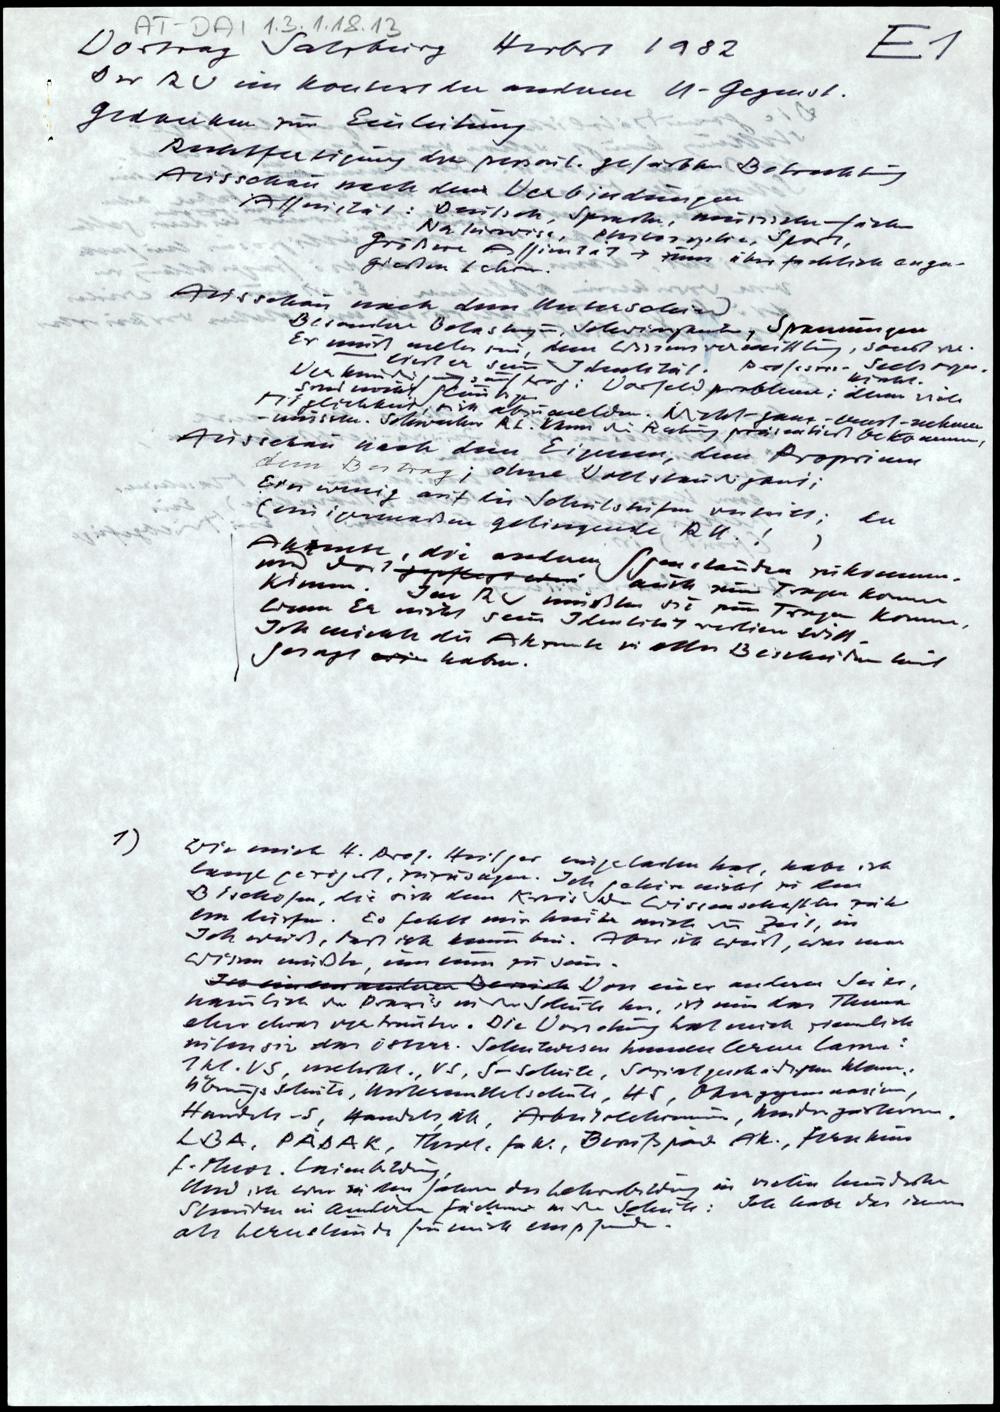 AT-DAI 1.3.1.18.13
Vortrag Salzburg Herbst 1982 E1
Der RU im Konzert der anderen U-Gegenst.
Gedanken zur Einleitung
Rechtfertigung der persönl. gefärbten Betrachtung
Ausschau nach den Verbindungen
Affinität: Deutsch, Sprache, musische Fächer
Naturwiss., Philosophie, Sport,
größere Affinität → zum überfachlich enga-
gierten Lehrer.
Ausschau nach dem Unterschied
Besondere Belastung, Schwierigkeiten, Spannungen
Er muß mehr sein, denn Wissensvermittlung, sonst ver-
liert er sein Identität. Professor - Seelsorger.
Verkündigungsauftrag: Vorfeldprobleme; denn viele
sind nicht gläubig Kirchl.
Möglichkeit, sich abzumelden. Nicht-ganz-ernst-nehmen
-müssen. Schwacher RL kann die Rechnung präsentiert bekommen,
Ausschau nach dem Eigenen, dem Proprium
dem Beitrag; ohne Vollständigkeit;
Ein wenig auf die Schulstufen verteilt; der
(einigermaßen gelingende RU.! )
Akzente, die anderen Gegenständen zukommen.
und dort auch zum Tragen kommen
können. Im RU müßten sie zum Tragen kommen,
wenn Er nicht sein Identität verlieren will.
Ich möchte die Akzente in aller Bescheidenheit
gesagt haben.
1) Wie mich H. Prof. Heilger eingeladen hat, habe ich
lange gezögert, zuzusagen. Ich gehöre nicht zu den
Bischöfen, die sich dem Kreis der Wissenschaftler zäh-
len dürfen. Es fehlt mir heute auch die Zeit, in
Ich weiß, daß ich kaum bin. Aber ich weiß, was man
wissen müßte, um zu sein.
Von einer anderen Seite,
nämlich der Praxis in der Schule her, ist mir das Thema
eher etwas vertrauter. Die Vorsehung hat mich ziemlich
intensiv das österr. Schulwesen kennen lernen lassen:
1kl. VS, mehrkl., VS, S-Schule, Sozialgeschädigten Klassen,
Übungsschule, Untermittelschule, HS, Obergymnasium,
Handels-S, Handelsak, Arbeitslehrerinnen, Kindergärtnerin.
LBA, PÄDAK, Theol. Fak., Berufspäd Ak., Fernkurs
f. theol. Laienbildung,
Und ich war in den Jahren der Lehrerbildung in vielen hunderten
Stunden in anderen Fächern in der Schule: Ich habe das immer
als Lernstunde für mich empfunden.